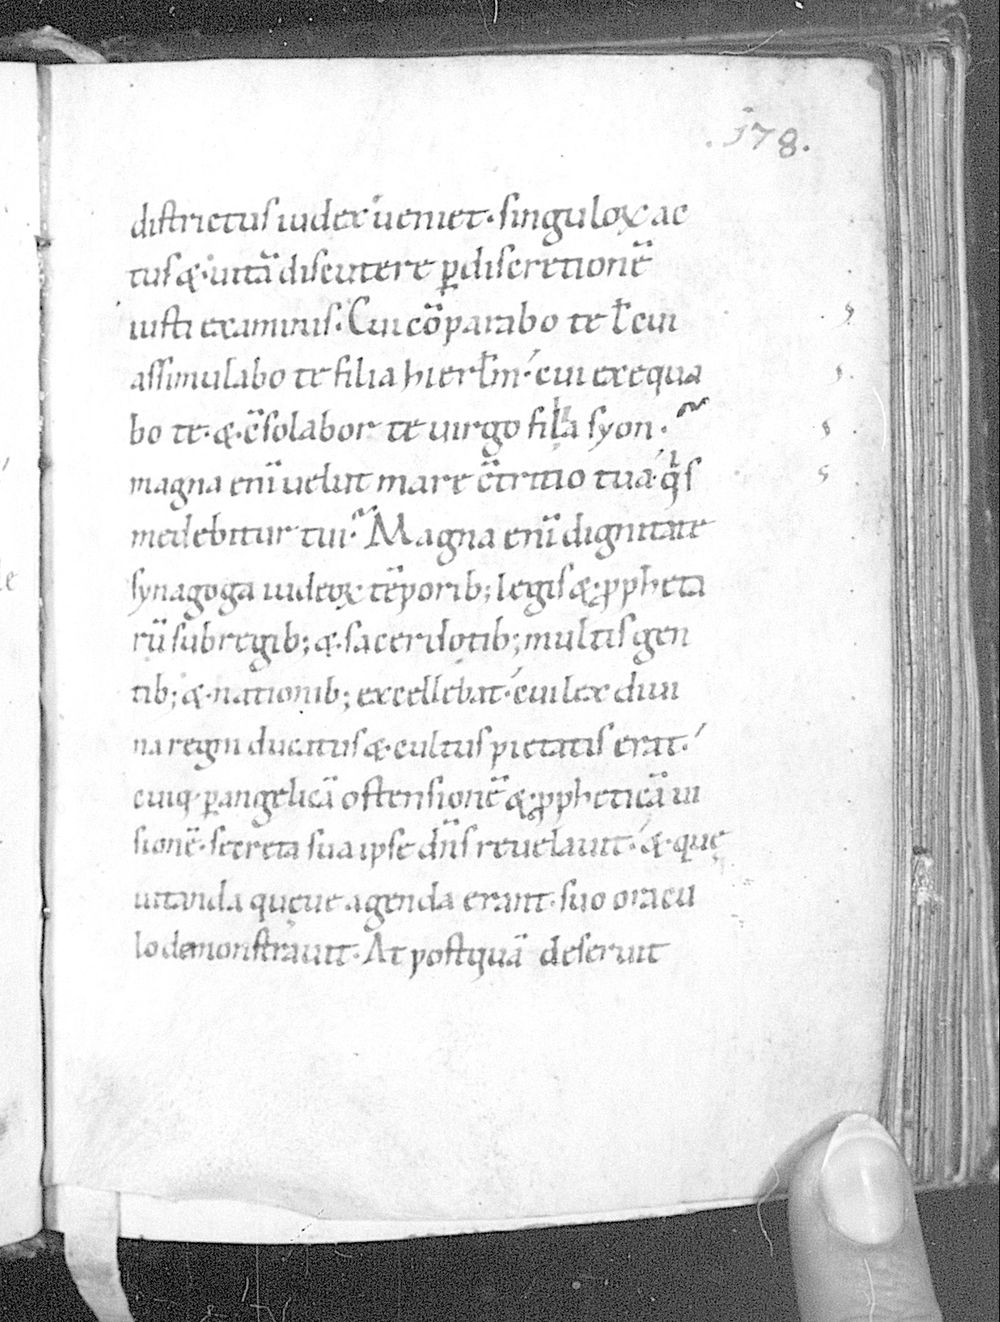 .178.
districtus iudex ueniet· singuloꝝ ac
tus &· uitā discutere ꝑdiscretionē
iusti examinis· Cui cōparabo te ł cui
assimulabo te filia hierłm· cui exequa
bo te· &· c̄solabor te uirgo filia syon·
magna enī uelut mare c̄tritio tua· q̇s
medebitur tui· Magna enī dignitate
synagoga iudeoꝝ tēporib; legis &· ꝓpheta
rū sub regib; &· sacerdotib; multis gen
tib; &· nationib; excellebat· cui lex diui
na regni ducatus &· cultus pietatis erat·
cuiq· ꝑangelicā ostensionē &· ꝓpheticā ui
sionē· secreta sua ipse dn̄s reuelauit· &· quę
uitanda quęue agenda erant· suo oracu
lo demonstrauit· At postquā deseruit